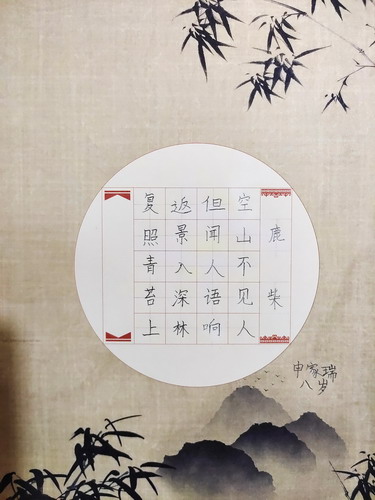 鹿柴
空山不见人
但闻人语响
返景入深林
复照青苔上
申家瑞
八岁